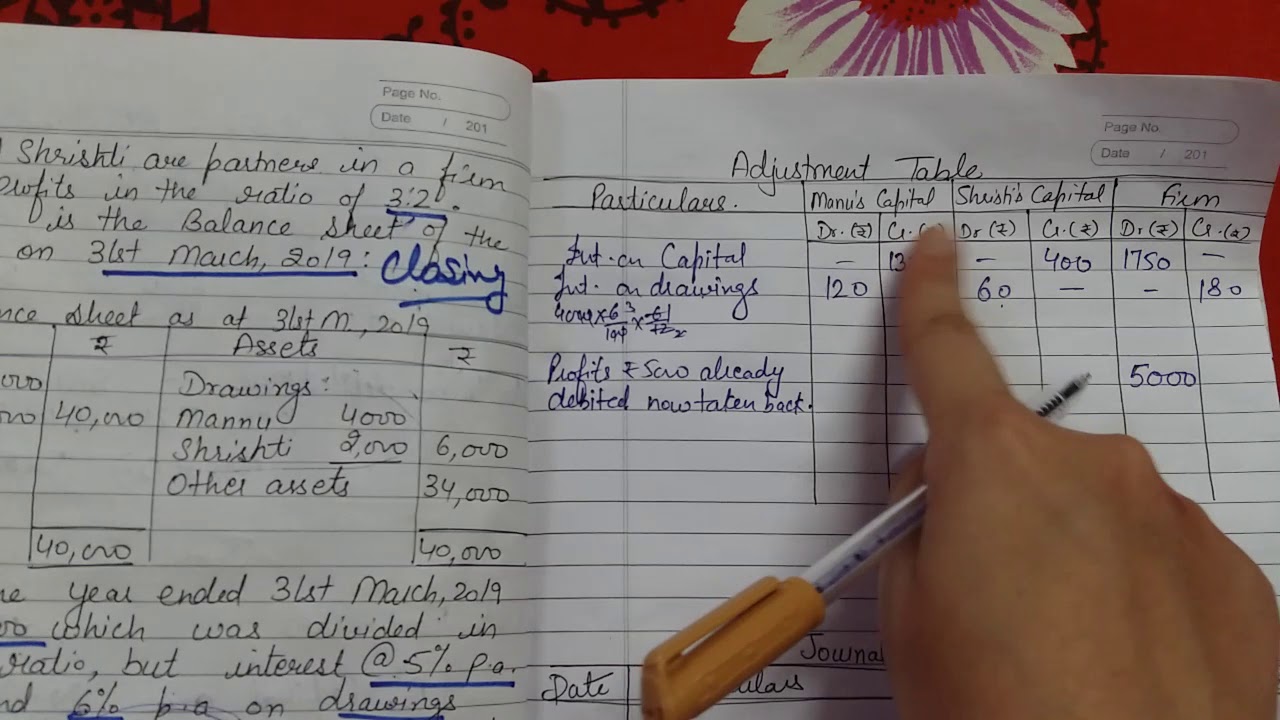 Page No.
Date / 201
Shrishti are partners in a firm
profits in the ratio of 3:2.
is the Balance sheet of the
on 31st March, 2019: Closing
nce sheet as at 31st M, 2019
₹ Assets ₹
000 Drawings:
000 40,000 Manny 4000
Shrishti 2,000 6,000
Other assets 34,000
40,000 40,000
year ended 31st March, 2019
which was divided in
ratio, but interest @ 5% p.a.
nd 6% p.a on drawings
Page No.
Date / 201
Adjustment Table
Particulars. Manu's Capital Shristi's Capital Firm
Dr.(₹) Cr.(₹) Dr(₹) Cr.(₹) Dr(₹) Cr.(₹)
Int. on Capital – 13 – 400 1750 –
Int. on drawings 120 60 – – 180
Profits ₹ 5000 already 5000
debited now taken back.
Journa
Date culars